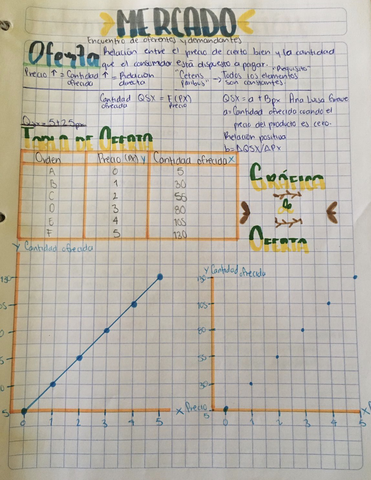 MERCADO
Encuentro de oferentes y demandantes
Oferta
Relación entre el precio de cierto bien y la cantidad
que el consumidor está dispuesto a pagar. "Requisito"
Precio ↑ = Cantidad ↑ = Relación "Ceteris → Todos los elementos
ofrecida directa paribus" son constantes
Cantidad QSX = F (PX)
ofrecida Precio
QSX = a + Bpx Ana Luisa Grave
a = Cantidad ofrecida cuando el
precio del producto es cero.
Relación positiva
b = ΔQSX/ΔPx
Qsx = 5+25px
Tabla de Oferta
Orden Precio (PX) y Cantidad ofrecida x
A 0 5
B 1 30
C 2
D 3 80
E 4 105
F 5 130
Gráfica
de
Oferta
y Cantidad ofrecida
5
0 1 2 3 4 5 x Precio
y Cantidad ofrecida
130
105
80
55
30
5
0 1 2 3 4 5